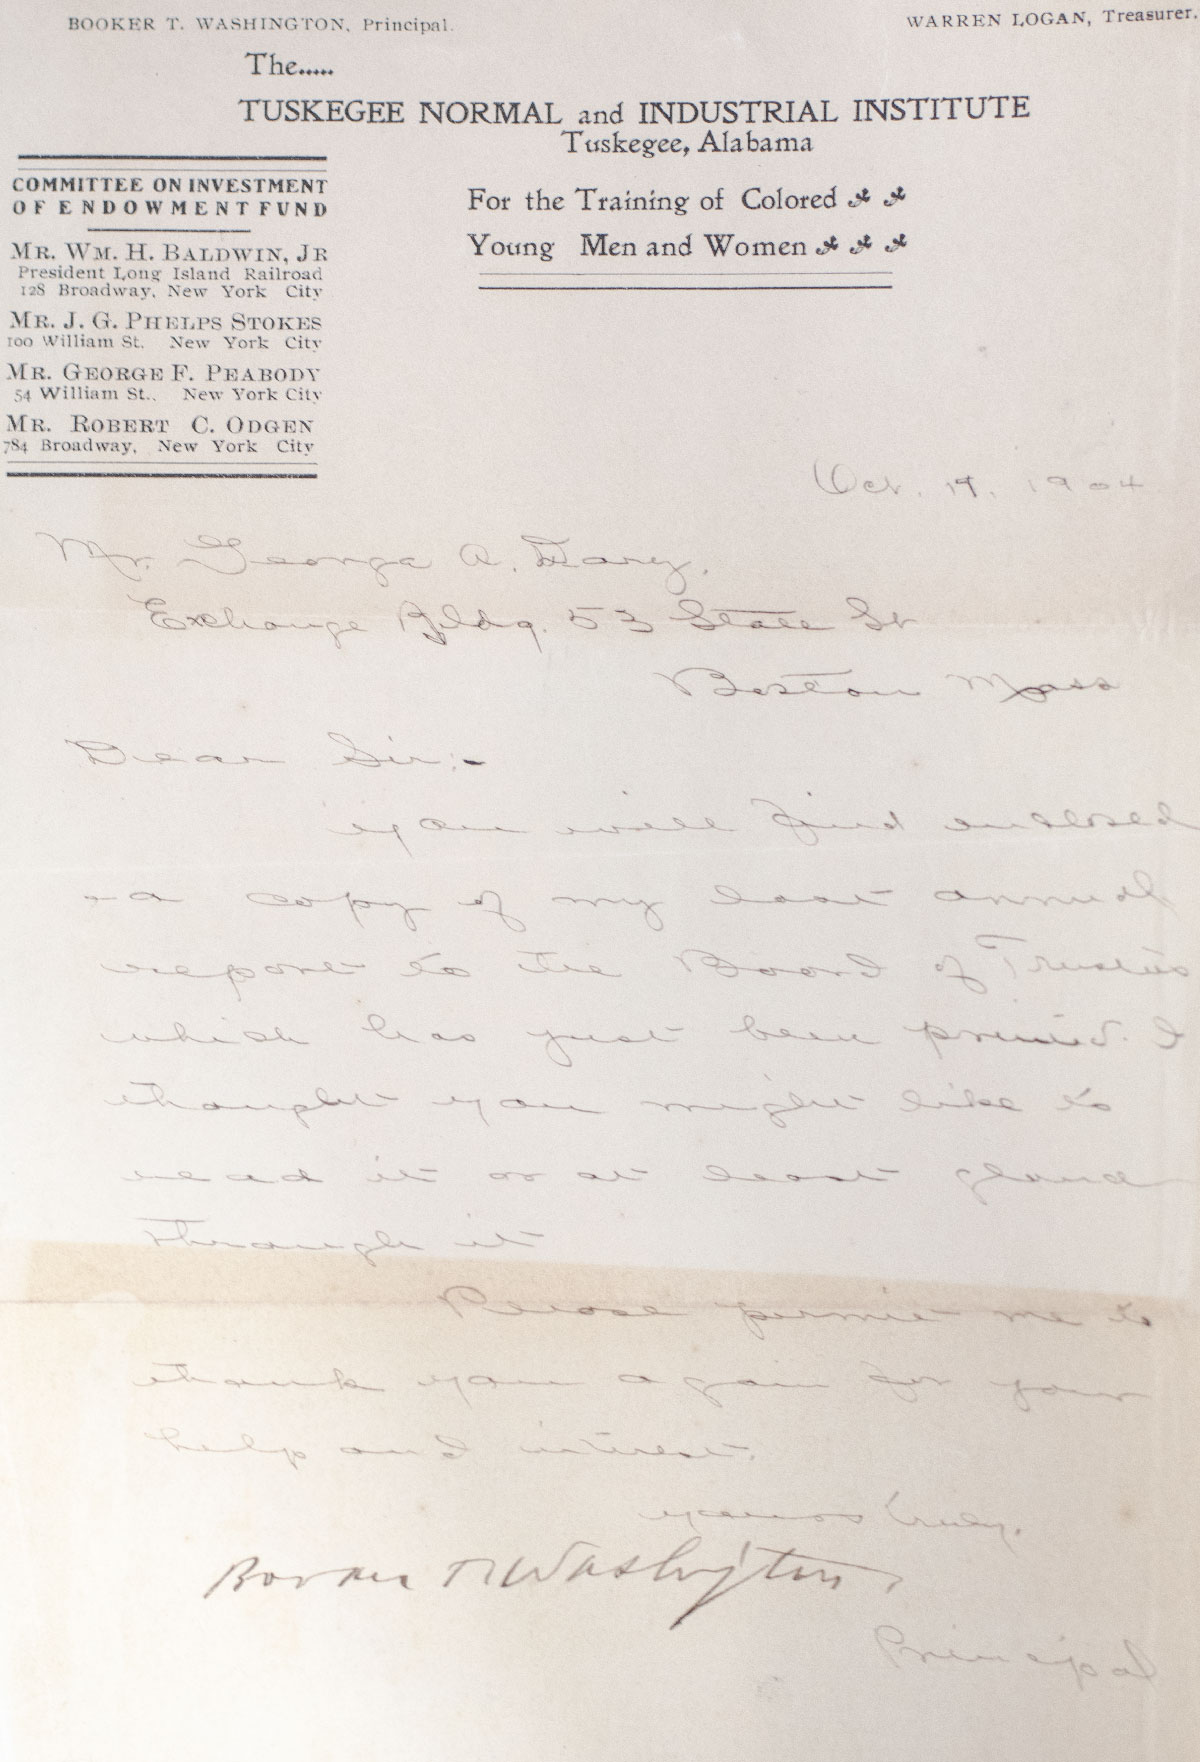 BOOKER T. WASHINGTON, Principal.
WARREN LOGAN, Treasurer.
The.....
TUSKEGEE NORMAL and INDUSTRIAL INSTITUTE
Tuskegee, Alabama
For the Training of Colored
Young Men and Women
COMMITTEE ON INVESTMENT
OF ENDOWMENT FUND
MR. WM. H. BALDWIN, JR
President Long Island Railroad
128 Broadway, New York City
MR. J. G. PHELPS STOKES
100 William St. New York City
MR. GEORGE F. PEABODY
54 William St., New York City
MR. ROBERT C. ODGEN
784 Broadway, New York City
Oct. 19. 1904
Mr. George A.
Exchange Bldg. 53 State St
Boston Mass
Dear Sir:-
You will find enclosed
a copy of my last annual
report to the Board of Trustees
which has just been printed. I
thought you might like to
read it or at least glance
through it
Please permit me to
thank you again for your
help and interest.
Yours truly,
Booker T. Washington,
Principal